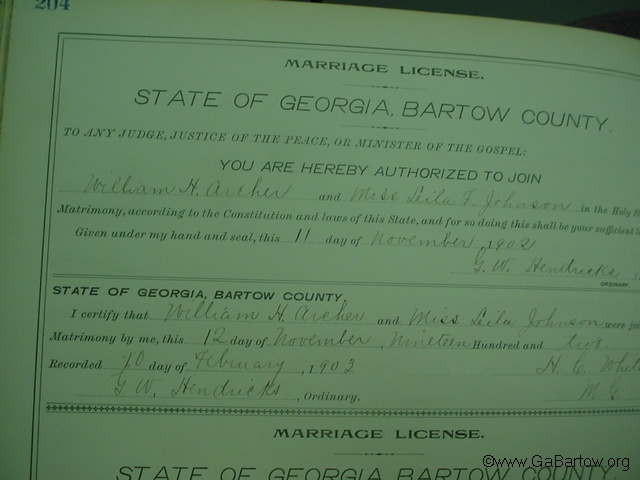 204
MARRIAGE LICENSE.
STATE OF GEORGIA, BARTOW COUNTY.
TO ANY JUDGE, JUSTICE OF THE PEACE, OR MINISTER OF THE GOSPEL:
YOU ARE HEREBY AUTHORIZED TO JOIN
William H. Archer and Miss Leila F. Johnson in the Holy
Matrimony, according to the Constitution and laws of this State, and for so doing this shall be your sufficient
Given under my hand and seal, this 11 day of November, 1902
G. W. Hendricks
ORDINARY.
STATE OF GEORGIA, BARTOW COUNTY,
I certify that William H. Archer and Miss Leila Johnson were
Matrimony by me, this 12 day of November, nineteen Hundred and two
Recorded 10 day of February, 1903 H. C. Whit
G. W. Hendricks, Ordinary. M. G.
MARRIAGE LICENSE.
STATE OF GEORGIA, BARTOW COUNTY.
©www.GaBartow.org